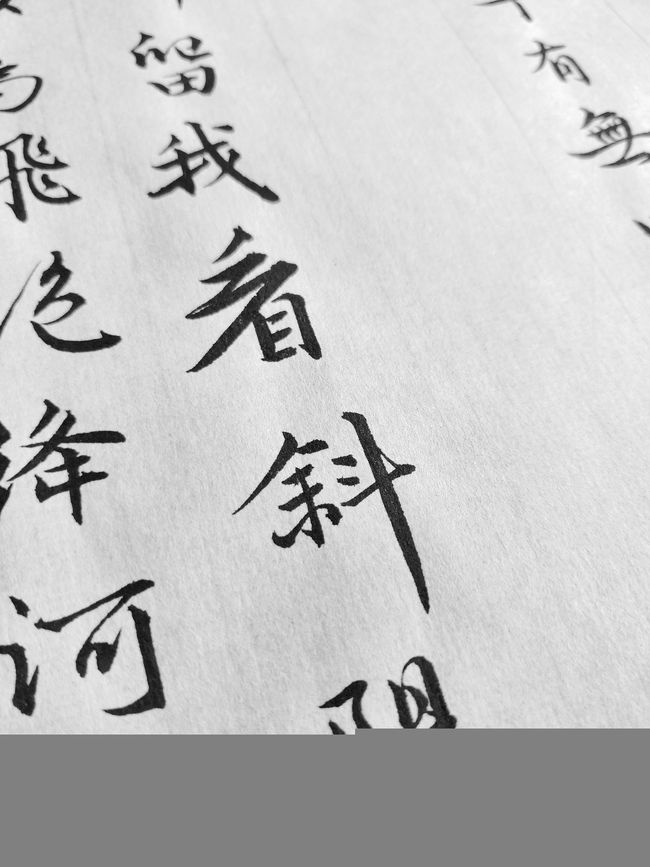 有無
留我看斜
高飛色絳河